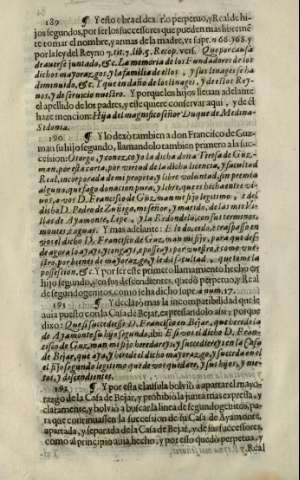 189 ¶ Y esto obra el derecho perpetuo, y Real de hi-
jos segundos, por ser los sucessores que pueden mas libremẽ
te tomar el nombre, y armas de la madre, vt supr. n. 66. 168. y
por la ley del Reyno 7. tit. 7. lib. 5. Recop. versi. Que por causa
de averse juntado, &c. La memoria de los Fundadores de los
dichos mayorazgos, y la familia dellos, y sus linages se ha
diminuido, &c. I que en daño de los linages, y destos Rey-
nos, y de servicio nuestro. Y porque los hijos llevan adelante
el apellido de los padres, y este quiere conservar aqui, y de èl
haze mencion: Hija del magnifico señor Duque de Medina-
Sidonia.
190 ¶ Y lo dexò tambien a don Francisco de Guz-
man su hijo segundo, llamandolo tambien primero a la suc-
cession: Otorgo, y conozco yo la dicha doña Teresa de Guz-
man, por esta carta, por virtud de la dicha licencia, y facultad
Real, incorporada de mi propia, y libre voluntad, sin premia
alguna, que fago donacion pura, y libre, que es hecha entre vi-
vos, a vos D. Francisco de Guzman mi hijo legitimo, y del
dicho D. Pedro de Zuñiga, mi señor, y marido, de las mis vi-
llas de Ayamonte, Lepe, y la Redondela, con sus terminos,
montes, y aguas. Y mas adelante: E lo do, cedo, e traspasso en
vos el dicho D. Francisco de Guzman mi fijo, para que des-
de agora lo ayays, y tengays, e posseays por vuestro, como vues-
tro, por bienes de mayorazgo, y le dò facultad que tome la
possession, &c. Y por ser este primero llamamiento hecho en
hijo segundo, y en sus descendientes, quedò perpetuo, y Real
de segundogenitos, como se ha dicho supr. à num. 17.
191 ¶ Y declarò mas la incompatibilidad que le
auia puesto con la Casa de Bejar, expressandolo assi; y porque
dixo: Que si sucediesse D. Francisco en Bejar, que heredasse
de Ayamonte su hijo segundo, ibi: E si vos el dicho D. Fran-
cisco de Guzman mi fijo heredaredes, y sucedieredes en la Casa
de Bejar, que aya, y herede el dicho mayorazgo, y suceda en el
el fijo segundo legitimo que de vos quedare, y sus hijos, y nie-
tos, y descendientes.
192 ¶ Y por esta clausula bolviò à apartar el mayo-
razgo de la Casa de Bejar, y prohibiò la junta mas expressa, y
claramente, y bolviò a buscar la linea de segundogenitos, pa-
ra que continuassen la succession de su Casa de Ayamonte,
apartada, y separada de la Casa de Bejar, y de sus successores,
como al principio auia hecho, y por esso quedò perpetua,
y Real